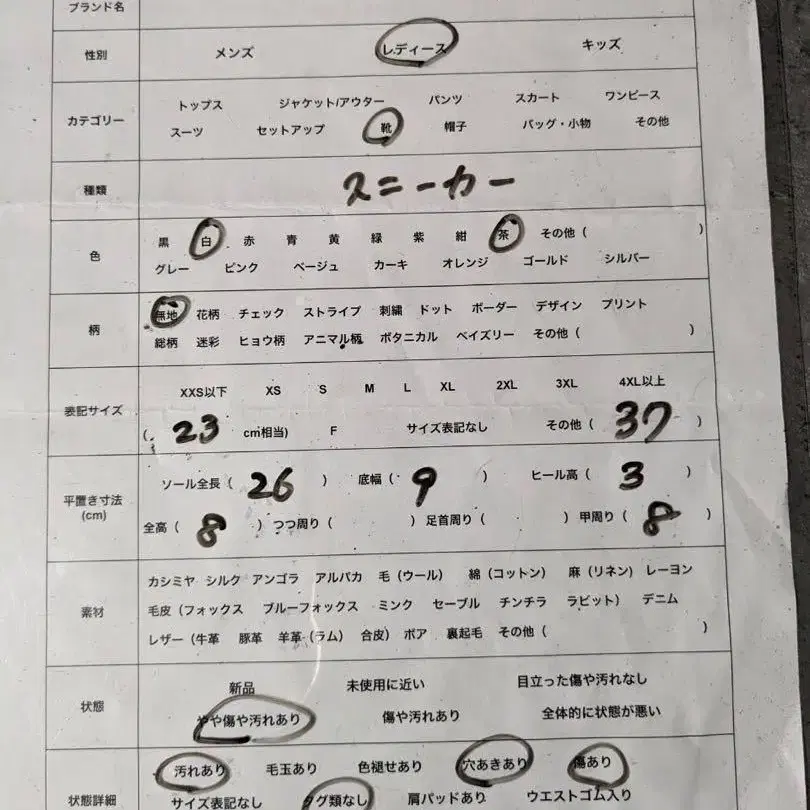 ブランド名
性別 メンズ レディース キッズ
カテゴリー トップス ジャケット/アウター パンツ スカート ワンピース
スーツ セットアップ 靴 帽子 バッグ・小物 その他
種類 スニーカー
色 黒 白 赤 青 黄 緑 紫 紺 茶 その他 ( )
グレー ピンク ベージュ カーキ オレンジ ゴールド シルバー
柄 無地 花柄 チェック ストライプ 刺繍 ドット ボーダー デザイン プリント
総柄 迷彩 ヒョウ柄 アニマル柄 ボタニカル ペイズリー その他 ( )
表記サイズ XXS以下 XS S M L XL 2XL 3XL 4XL以上
( 23 cm相当) F サイズ表記なし その他 ( 37 )
平置き寸法 (cm) ソール全長 ( 26 ) 底幅 ( 9 ) ヒール高 ( 3 )
全高 ( 8 ) つつ周り ( ) 足首周り ( ) 甲周り ( 8 )
素材 カシミヤ シルク アンゴラ アルパカ 毛 (ウール) 綿 (コットン) 麻 (リネン) レーヨン
毛皮 (フォックス ブルーフォックス ミンク セーブル チンチラ ラビット) デニム
レザー (牛革 豚革 羊革 (ラム) 合皮) ボア 裏起毛 その他 ( )
状態 新品 未使用に近い 目立った傷や汚れなし
やや傷や汚れあり 傷や汚れあり 全体的に状態が悪い
状態詳細 汚れあり 毛玉あり 色褪せあり 穴あきあり 傷あり
サイズ表記なし タグ類なし 肩パッドあり ウエストゴム入り